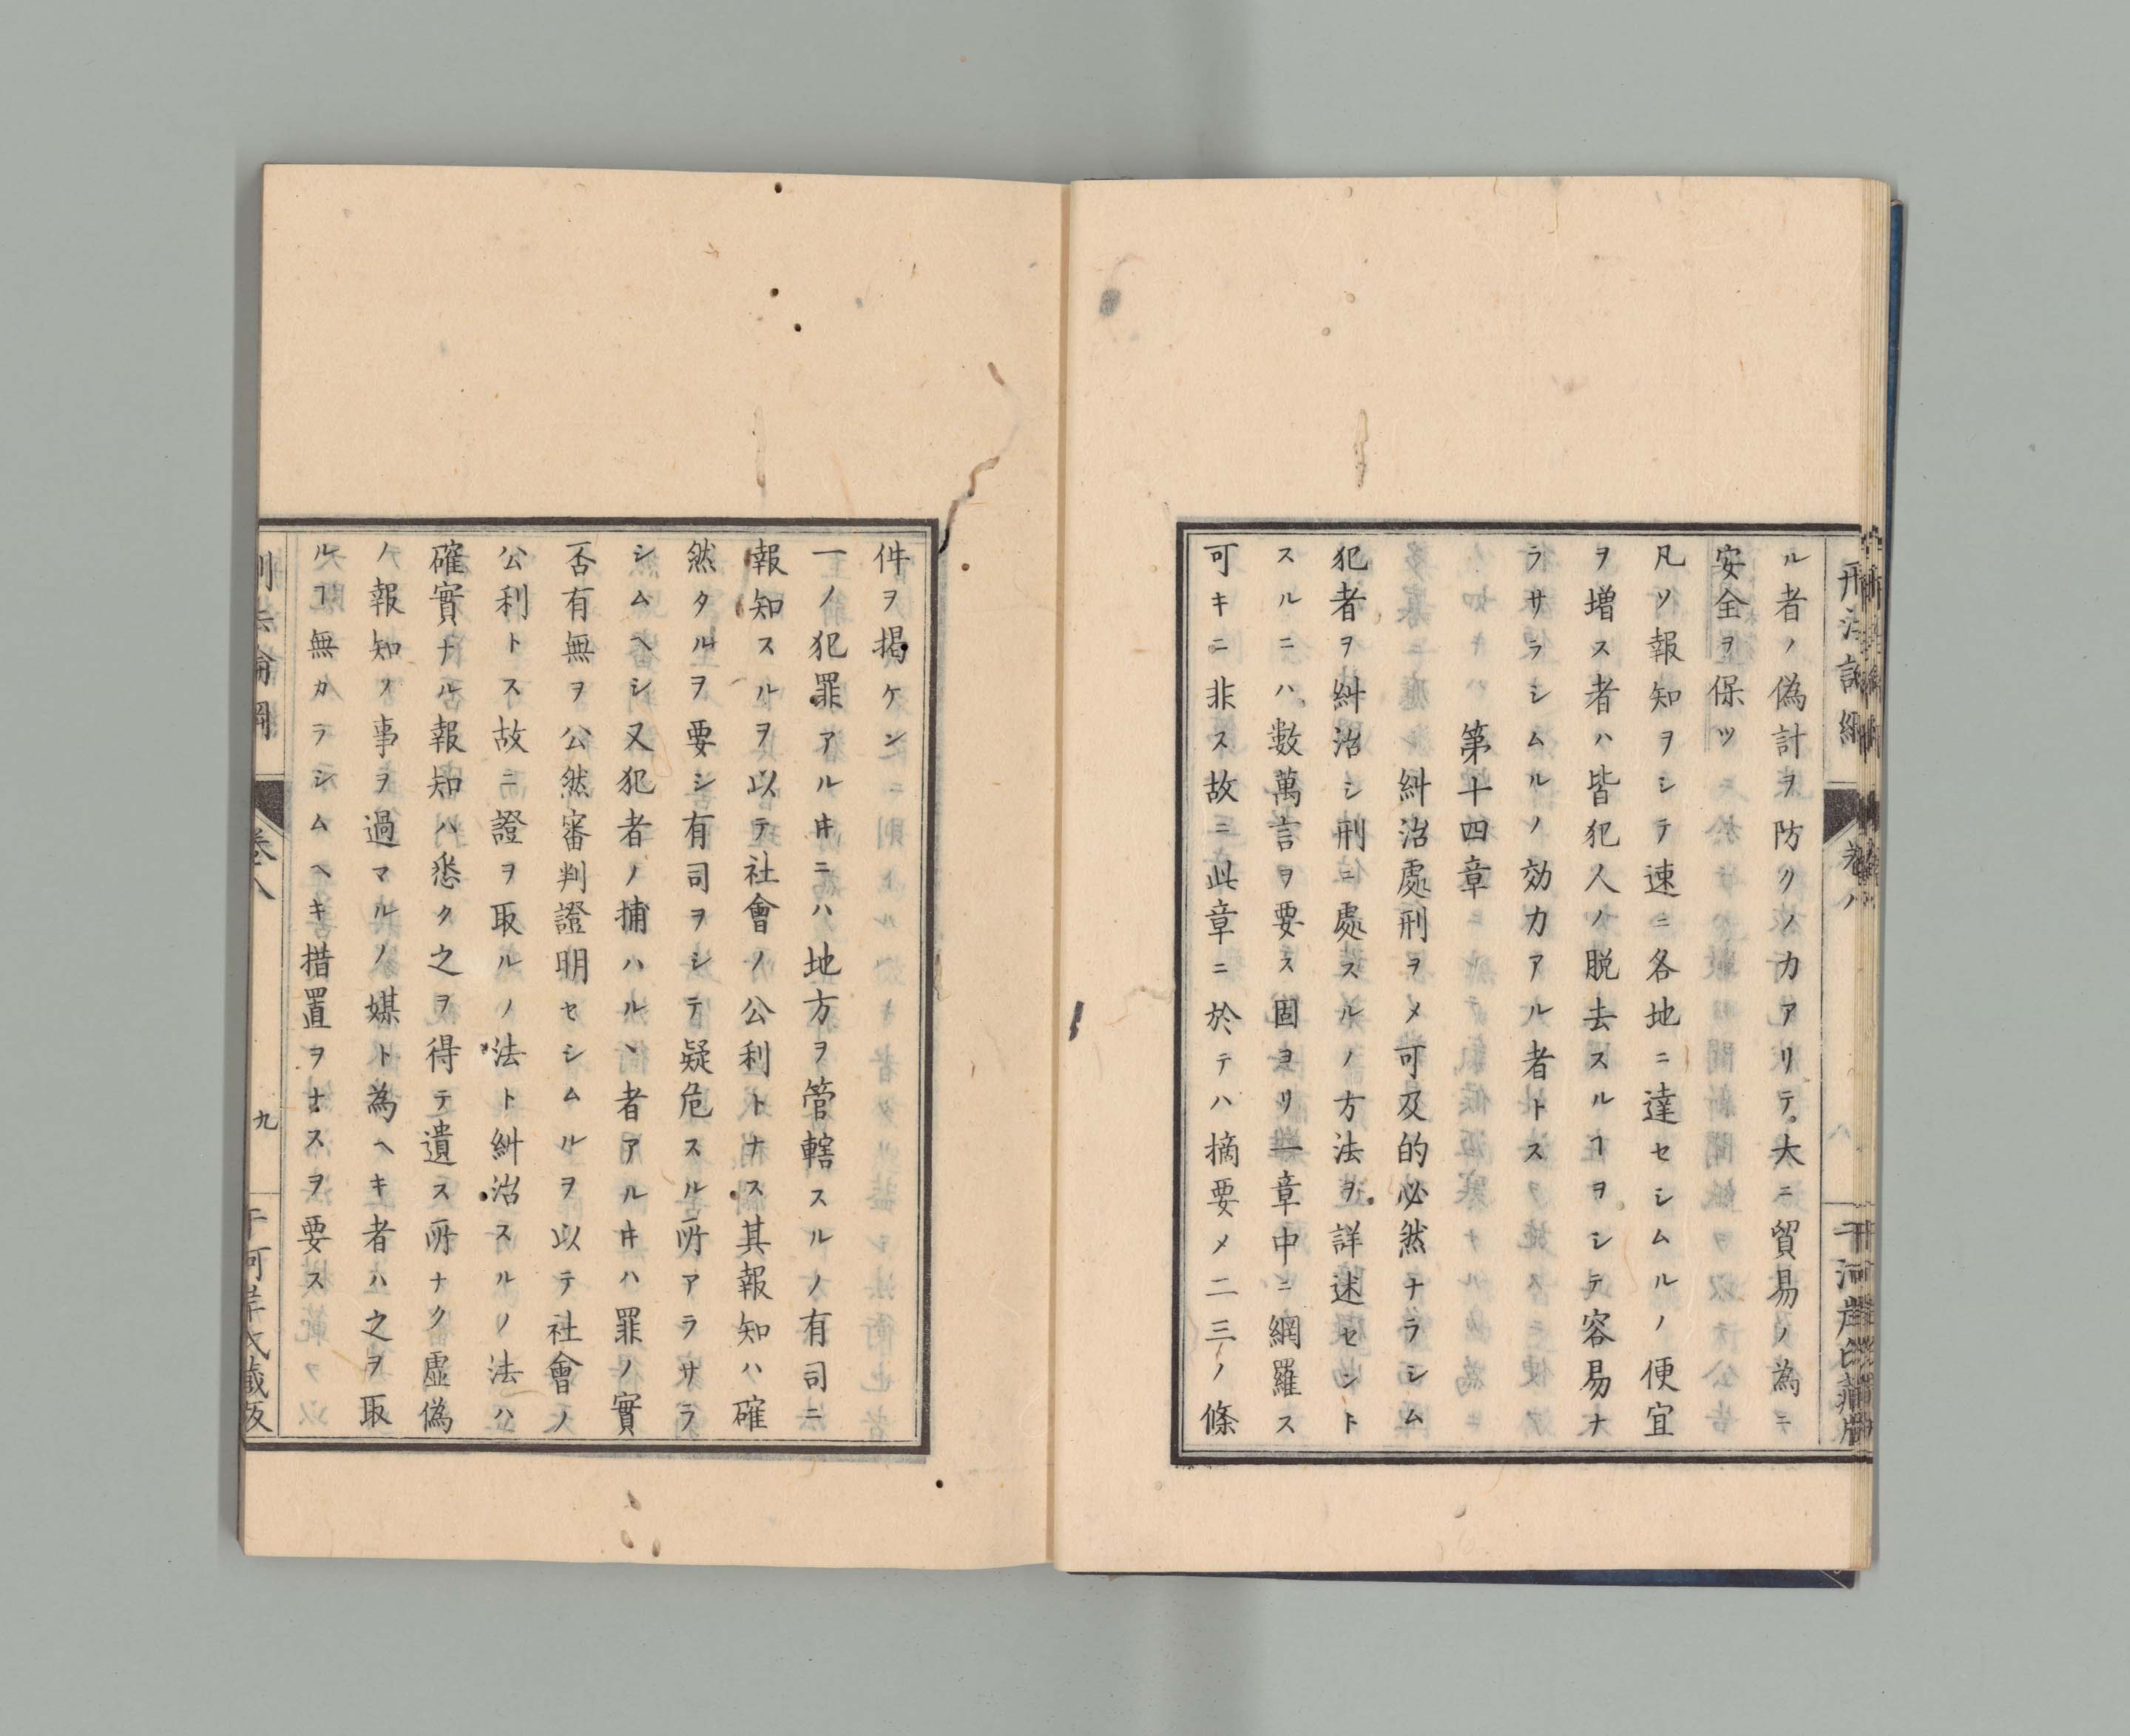 ル者ノ偽計ヲ防クノ力アリテ大ニ貿易ノ為ニ
安全ヲ保ツ
凡ソ報知ヲシテ速ニ各地ニ達セシムルノ便宜
ヲ増ス者ハ皆犯人ノ脱去スルヿヲシテ容易ナ
ラサラシムルノ効力アル者トス
第十四章
糾治處刑ヲメ可及的必然ナラシム
犯者ヲ糾治シ刑ニ處スルノ方法ヲ詳述セント
スルニハ數萬言ヲ要ス固ヨリ一章中ニ網羅ス
可キニ非ス故ニ此章ニ於テハ摘要メ二三ノ條
件ヲ掲ケン
一ノ犯罪アルヰニハ地方ヲ管轄スルノ有司ニ
報知スルヲ以テ社會ノ公利トナス其報知ハ確
然タルヲ要シ有司ヲシテ疑危スル所アラサラ
シムヘシ又犯者ノ捕ハルヽ者アルヰハ罪ノ實
否有無ヲ公然審判證明セシムルヲ以テ社會ノ
公利トス故ニ證ヲ取ルノ法ト糾治スルノ法ハ
確實ナル報知ハ悉ク之ヲ得テ遺ス所ナク虛偽
ノ報知ノ事ヲ過マルノ媒ト為ヘキ者ハ之ヲ取
ルヿ無カラシムヘキ措置ヲナスヲ要ス
卷八
九